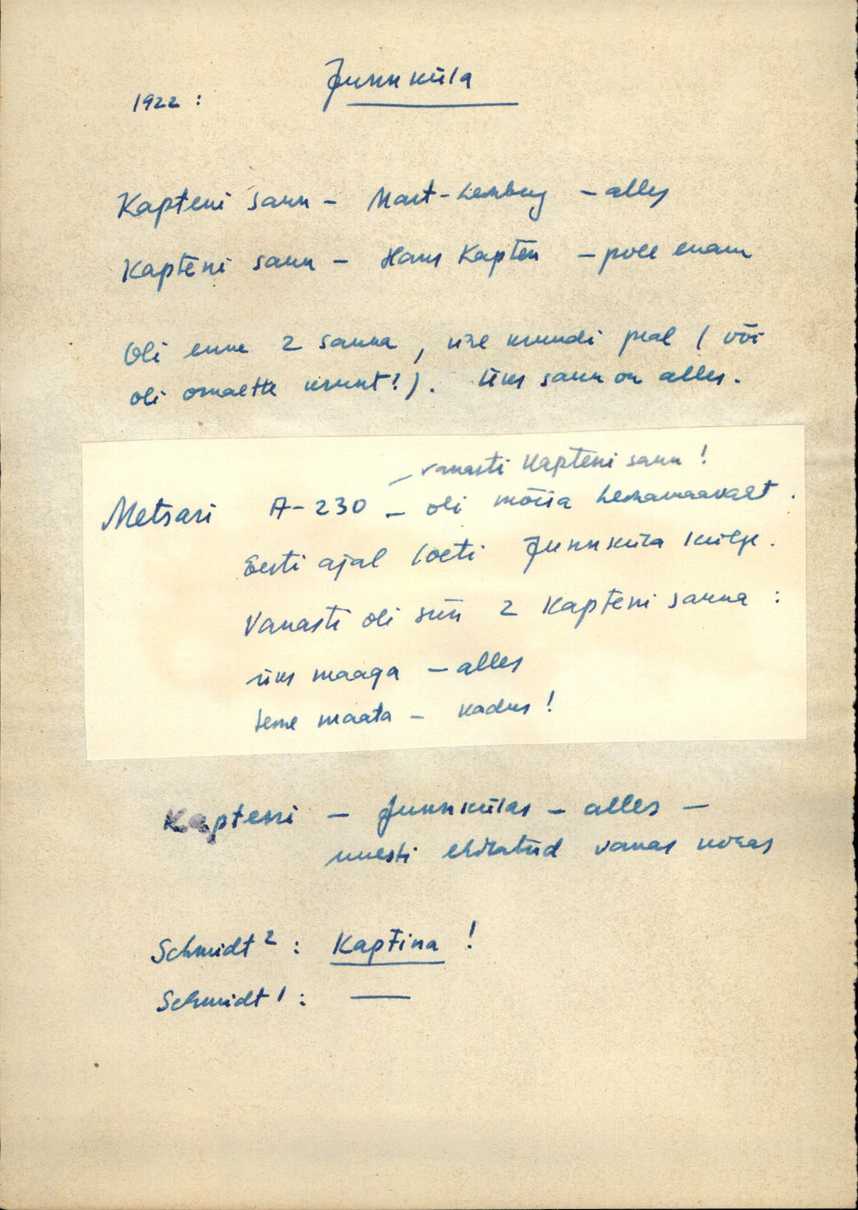 1922 : Junnküla
Kapteni saun - Mart Lemberg - alles
Kapteni saun - Hans Kapten - pole enam
Oli enne 2 sauna, ühe krundi peal (või
oli omaette krunt?). Üks saun on alles.
- vanasti Kapteni saun!
Metsari A-230 - oli mõisa
Eesti ajal loeti Junnküla külge.
Vanasti oli siin 2 Kapteni sauna :
üks maaga - alles
teine maata - kadus!
Kapteni - Junnkülas - alles -
uuesti ehitatud vanas kohas
Schmidt 2 : Kaptina !
Schmidt 1 : —